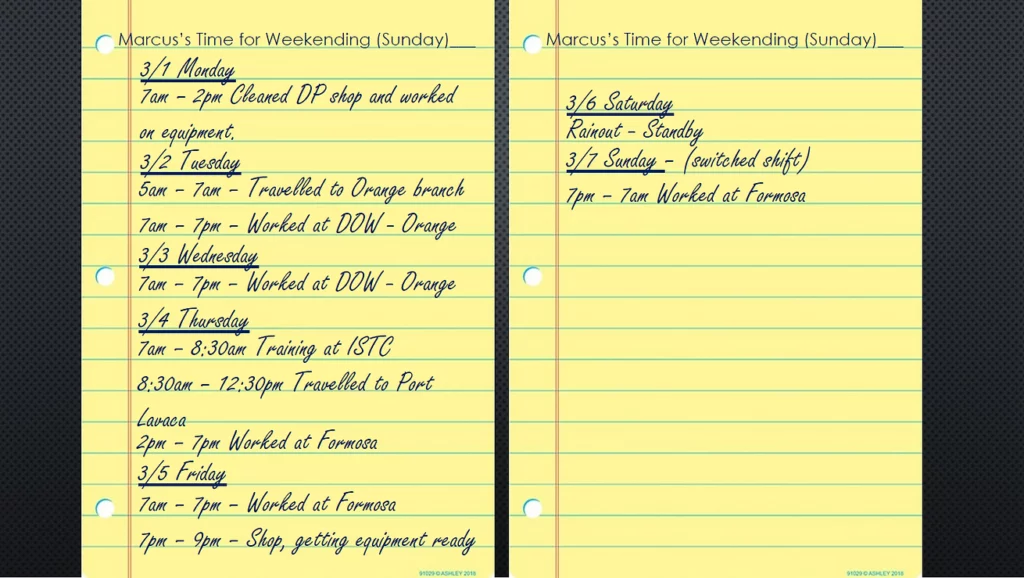 Marcus's Time for Weekending (Sunday)___
3/1 Monday
7am – 2pm Cleaned DP shop and worked
on equipment.
3/2 Tuesday
5am – 7am – Travelled to Orange branch
7am – 7pm – Worked at DOW - Orange
3/3 Wednesday
7am – 7pm – Worked at DOW - Orange
3/4 Thursday
7am – 8:30am Training at ISTC
8:30am – 12:30pm Travelled to Port
Lavaca
2pm – 7pm Worked at Formosa
3/5 Friday
7am – 7pm – Worked at Formosa
7pm – 9pm – Shop, getting equipment ready
91029 © ASHLEY 2016
Marcus's Time for Weekending (Sunday)___
3/6 Saturday
Rainout – Standby
3/7 Sunday – (switched shift)
7pm – 7am Worked at Formosa
91029 © ASHLEY 2016